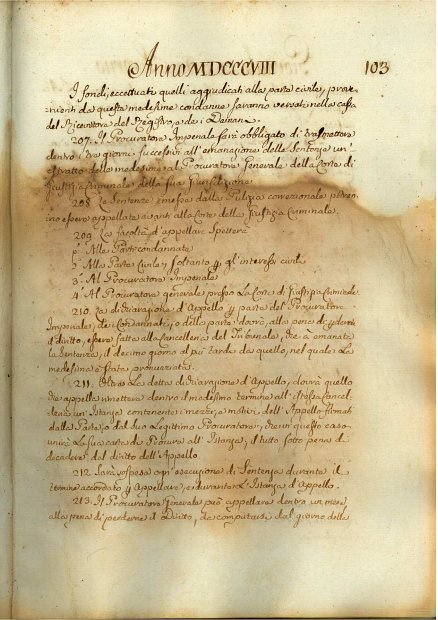 Anno MDCCCVIII 103
I fondi, eccettuati quelli aggiudicati alla parte civile, prove-
nienti da queste medesime condanne saranno versati nella cassa
del Ricevitore del Registro, e de i Demanj.
207. Il Procuratore Imperiale sarà obbligato di trasmettere
dentro i tre giorni successivi all'emanazione della Sentenza un'
estratto della medesima al Procuratore Generale della Corte di
Giustizia Criminale della sua Giurisdizione.
208. Le Sentenze emesse dalla Pulizia correzionale potran-
no essere appellate avanti alla Corte della Giustizia Criminale.
209. La facoltà d'appellare Spetterà
Alle Parti condannate
2. Alla Parte Civile soltanto gl'interessi civili
3. Al Procuratore Imperiale
4. Al Procuratore generale presso La Corte di Giustizia Criminale
210. La dichiarazione d'Appello parte del Procuratore
Imperiale, de i Condannati, o della parte dovrà, alla pena di perdere
il diritto, essere fatta alla Cancelleria del Tribunale, che à emanata
la Sentenza, il decimo giorno al più tardi da quello, nel quale La
medesima è stata pronunziata.
211. Oltre La detta dichiarazione d'Appello, dovrà quello
che appella rimettere dentro il medesimo termine all'istessa Cancel-
leria un'Istanza contenente i mezzi, e motivi dell'Appello firmata
dalla Parte, o dal suo Legittimo Procuratore, che in questo caso
unirà La sua carta de Procura all'Istanza, il tutto sotto pena di
decadere dal diritto dell'Appello.
212. Sarà sospesa ogn'esecuzione di Sentenza durante il
termine accordato Appellare, e durante L'Istanza d'Appello.
213. Il Procuratore Generale può appellare dentro un mese
alla pena di perderne il Diritto, da computarsi dal giorno della